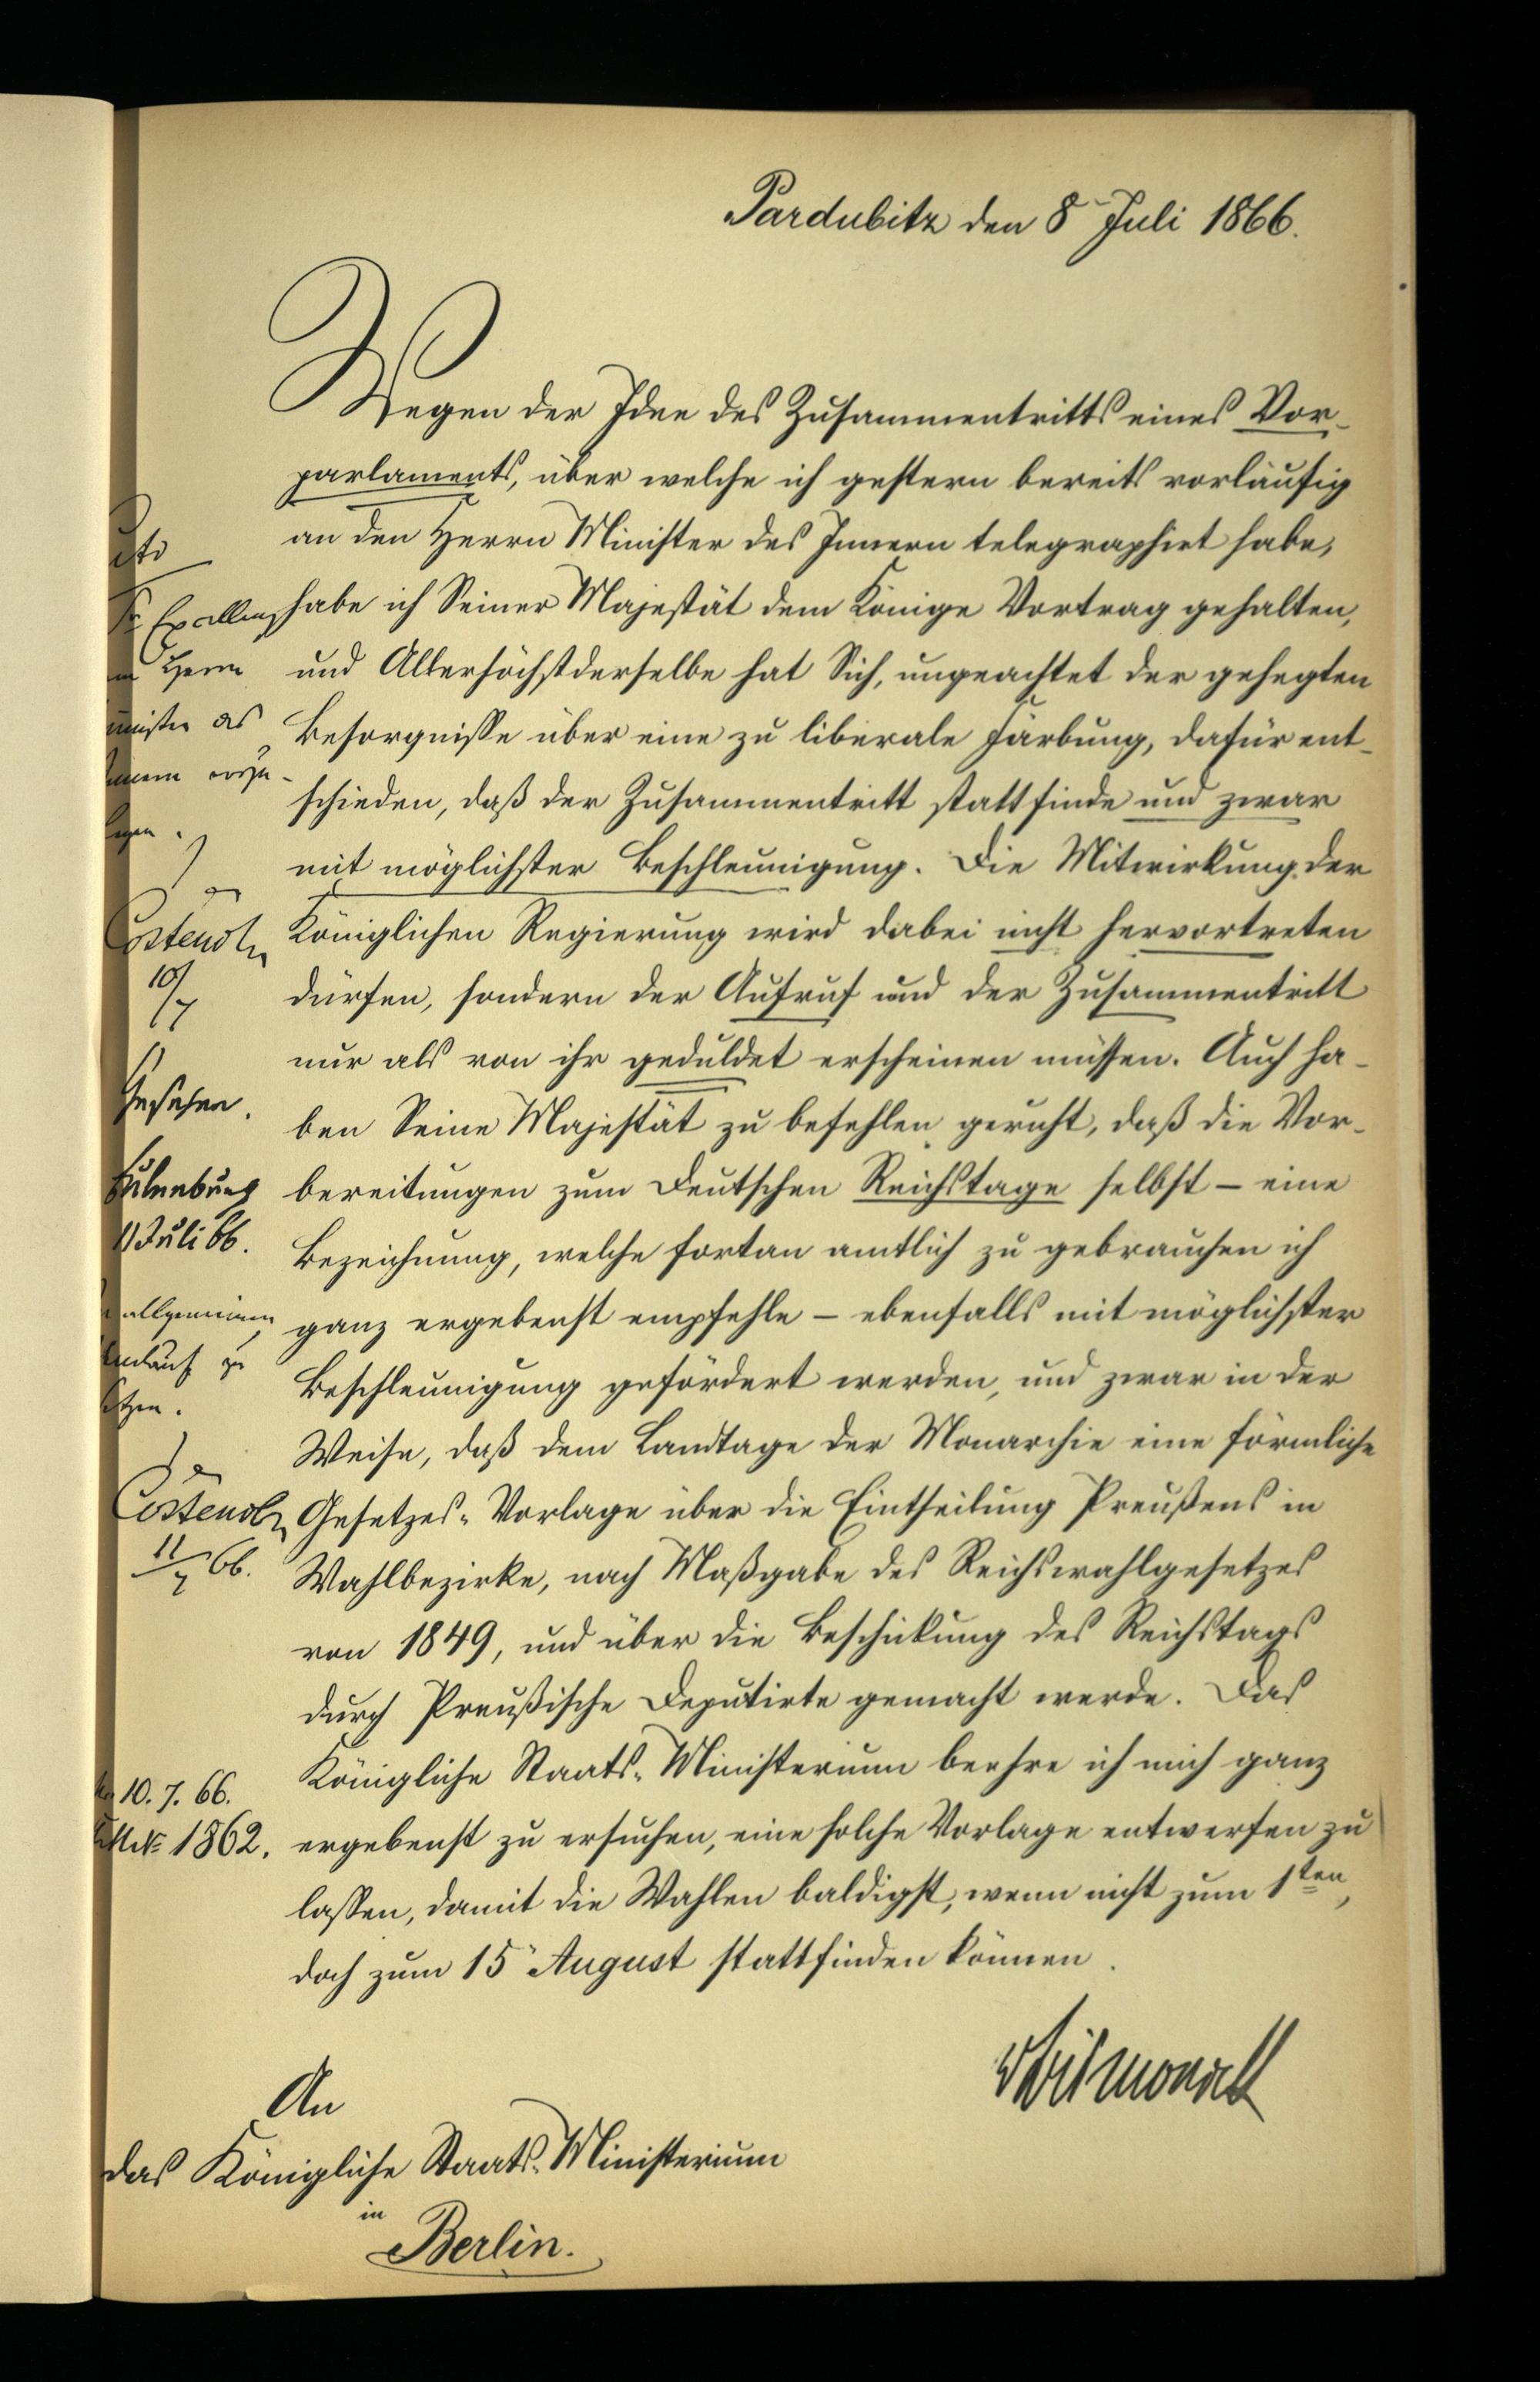 Pardubitz den 8 Juli 1866.
Wegen der Idee des Zusammentritts eines Vor-
parlaments, über welche ich gestern bereits vorläufig
an den Herrn Minister des Innern telegraphirt habe,
habe ich Seiner Majestät dem Könige Vortrag gehalten,
und Allerhöchstderselbe hat Sich, ungeachtet der gehegten
Besorgnisse über eine zu liberale Färbung, dafür ent-
schieden, daß der Zusammentritt stattfinde und zwar
mit möglichster Beschleunigung. Die Mitwirkung der
Königlichen Regierung wird dabei nicht hervortreten
dürfen, sondern der Aufruf und der Zusammentritt
nur als von ihr geduldet erscheinen müssen. Auch ha-
ben Seine Majestät zu befehlen geruht, daß die Vor-
bereitungen zum Deutschen Reichstage selbst – eine
Bezeichnung, welche fortan amtlich zu gebrauchen ich
ganz ergebenst empfehle – ebenfalls mit möglichster
Beschleunigung gefördert werden, und zwar in der
Weise, daß dem Landtage der Monarchie eine förmliche
Gesetzes-Vorlage über die Eintheilung Preußens in
Wahlbezirke, nach Maßgabe des Reichswahlgesetzes
von 1849, und über die Beschickung des Reichstags
durch Preußische Deputirte gemacht werde. Das
Königliche Staats-Ministerium beehre ich mich ganz
ergebenst zu ersuchen, eine solche Vorlage entwerfen zu
lassen, damit die Wahlen baldigst, wenn nicht zum 1ten,
doch zum 15 August stattfinden können.
vBismarck
An
das Königliche Staats-Ministerium
in
Berlin.
Excellenz
Herrn
des
Costenoble
10/7
Gesehen.
Eulenburg
11 Juli 66.
allgemeinen
Umlauf zu
setzen.
Costenoble
11/7 66.
10. 7. 66.
1862.